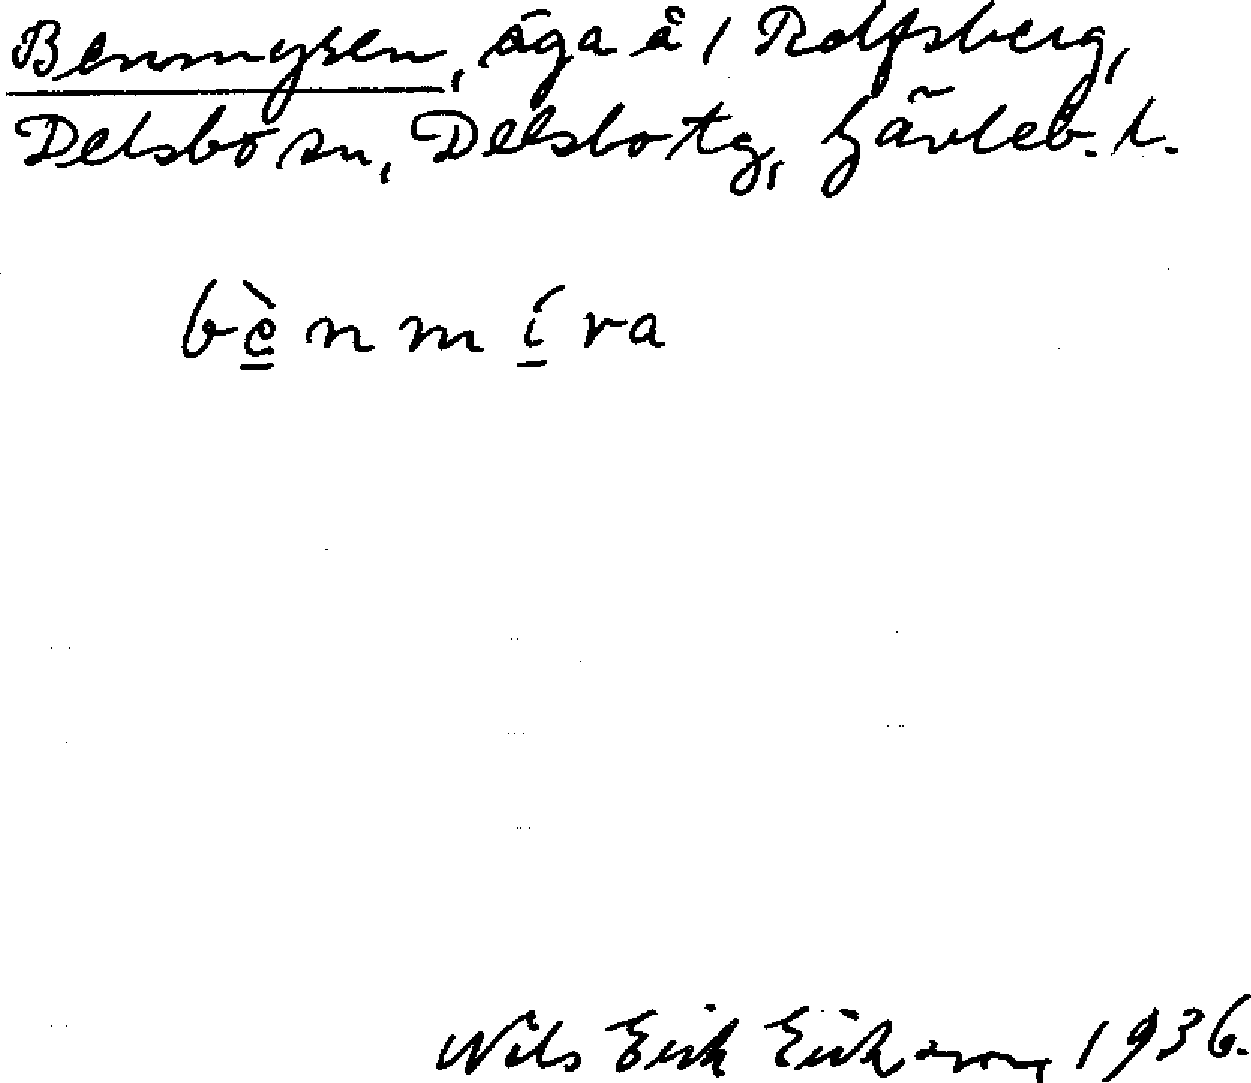 Benmyren, äga å 1 Rolfsberg,
Delsbo sn, Delsbo tg, Gävleb. l.
bènmíra
Nils Erik Eriksson, 1936.